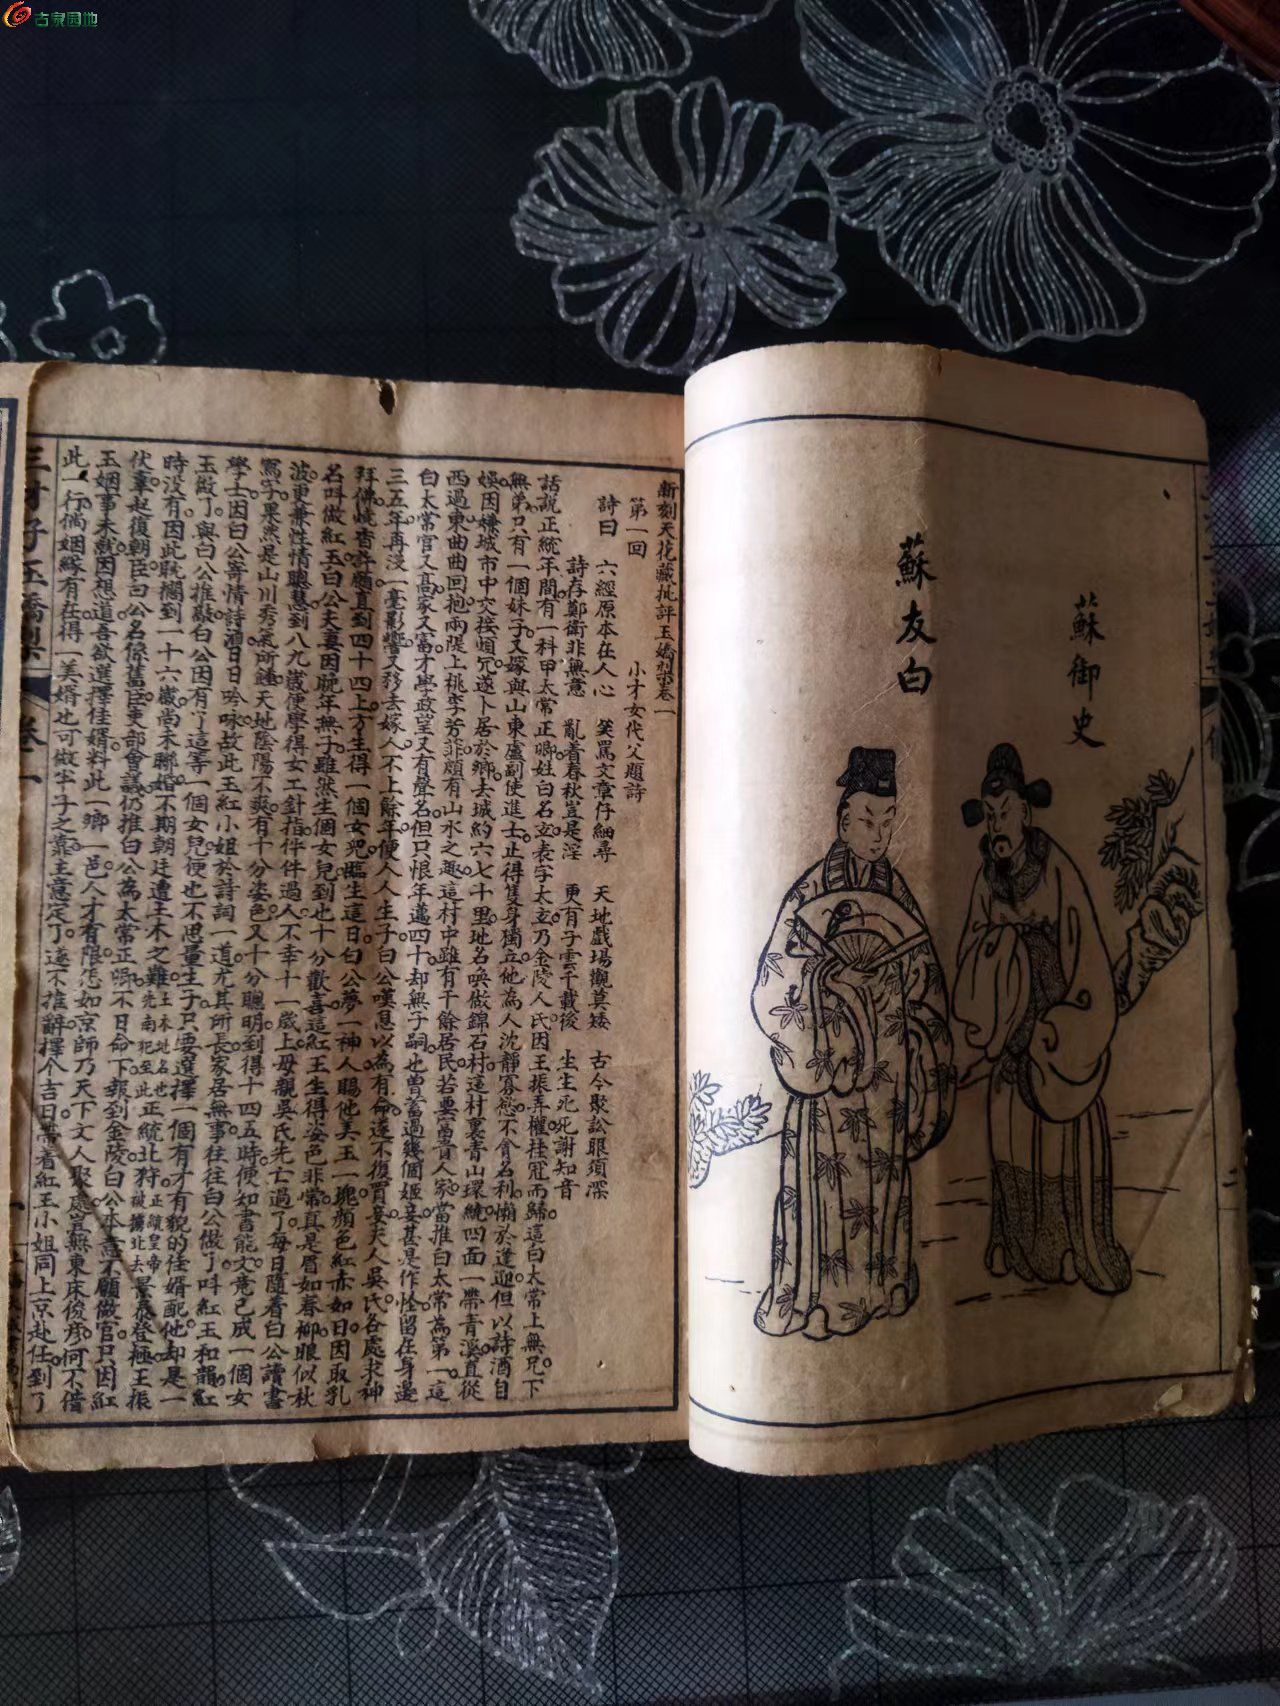 古泉园地
蘇御史
蘇友白
新刻天花藏批評玉嬌梨卷一
第一回
小才女代父題詩
詩曰 六經原本在人心 笑罵文章仔細尋 天地戲場觀莫矮 古今聚訟眼須深
詩存鄭衛非無意 亂着春秋豈是淫 更有子雲千載後 生生死死謝知音
話說正統年間有一科甲太常正卿姓白名玄表字太玄乃金陵人氏因王振弄權挂冠而歸這白太常上無兄下
無弟只有一個妹子又嫁與山東盧副使進士止得隻身獨立他為人沈靜寡慾不貪名利懶於逢迎但以詩酒自
娛因嫌城市中交接煩冗遂卜居於鄉去城約六七十里地名喚做錦石村這村裏青山環繞四面一帶青溪直從
西過東曲曲回抱兩隄上桃李芳菲頗有山水之趣這村中雖有千餘居民若要富貴人家當推白太常為第一這
白太常官又高家又富才學政望又有聲名但只恨年邁四十却無子嗣也曾蓄過幾個姬妾甚是作怪留在身邊
三五年再沒一毫影響又移去嫁人不上餘年便人人生子白公嘆息以為有命遂不復買妾夫人吳氏各處求神
拜佛燒香許願直到四十四上方生得一個女兒臨生這日白公夢一神人賜他美玉一塊顏色紅赤如日因取乳
名呌做紅玉白公夫妻因晚年無子雖然生個女兒到也十分歡喜這紅玉生得姿色非常真是眉如春柳眼似秋
波更兼性情聰慧到八九歲便學得女工針指件件過人不幸十一歲上母親吳氏先亡過了每日隨着白公讀書
寫字果然是山川秀氣所鍾天地陰陽不爽有十分姿色又十分聰明到得十四五時便知書能文竟已成一個女
學士因白公寄情詩酒日日吟咏故此玉紅小姐於詩詞一道尤其所長家居無事往往白公做了呌紅玉和韻紅
玉做了與白公推敲白公因有了這等一個女兒便也不思量生子只要選擇一個有才有貌的佳婿配他却是一
時沒有因此耽擱到一十六歲尚未聯婚不期朝廷遭土木之難土木地名也先南犯至此正統北狩正統皇帝被擄北去景泰登極王振
伏辜起復朝臣白公名係舊臣吏部會議仍推白公為太常正卿不日命下報到金陵白公本意不願做官只因紅
玉姻事未就因想道吾欲選擇佳婿料此一鄉一邑人才有限怎如京師乃天下文人聚處豈無東床俊彥何不借
此一行倘姻緣有在得一美婿也可做半子之靠主意定了遂不推辭擇个吉日帶着紅玉小姐同上京赴任到了
三才子玉嬌梨 卷一 一